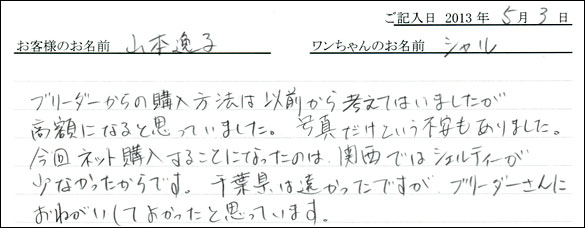 ご記入日 2013 年 5 月 3 日
お客様のお名前 山本逸子 ワンちゃんのお名前 シャル
ブリーダーからの購入方法は以前から考えてはいましたが
高額になると思っていました。写真だけという不安もありました。
今回ネット購入することになったのは、関西ではシェルティーが
少なかったからです。千葉県は遠かったですが、ブリーダーさんに
おねがいしてよかったと思っています。